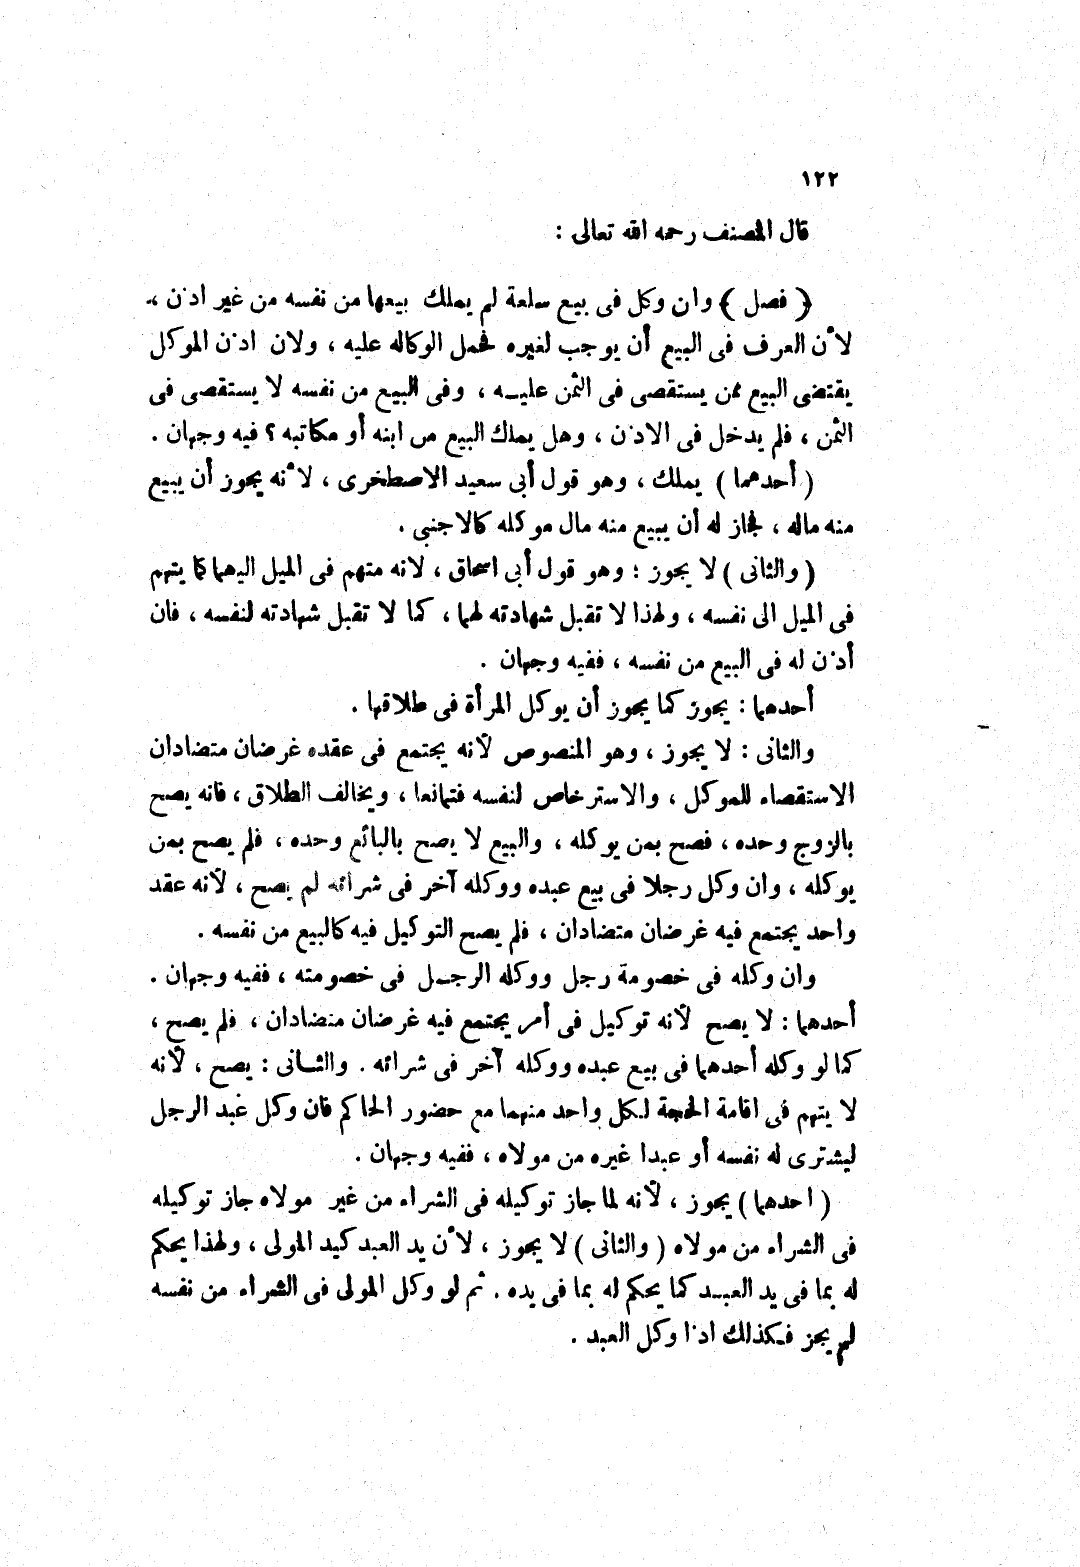 ١٢٢
قال المصنف رحمه الله تعالى :
﴿ فصل ﴾ وان وكل فى بيع سلعة لم يملك بيعها من نفسه من غير اذن ،
لأن العرف فى البيع أن يوجب لغيره فحمل الوكاله عليه ، ولان اذن الموكل
يقتضى البيع ممن يستقصى فى الثمن عليــه ، وفى البيع من نفسه لا يستقصى فى
الثمن ، فلم يدخل فى الاذن ، وهل يملك البيع من ابنه أو مكاتبه ؟ فيه وجهان .
( أحدهما ) يملك ، وهو قول أبى سعيد الاصطخرى ، لأنه يجوز أن يبيع
منه ماله ، فجاز له أن يبيع منه مال موكله كالاجنبى .
( والثانى ) لا يجوز : وهو قول أبى اسحاق ، لانه متهم فى الميل اليهما كما يتهم
فى الميل الى نفسه ، ولهذا لا تقبل شهادته لهما ، كما لا تقبل شهادته لنفسه ، فان
أذن له فى البيع من نفسه ، ففيه وجهان .
أحدهما : يجوز كما يجوز أن يوكل المرأة فى طلاقها .
والثانى : لا يجوز ، وهو المنصوص لأنه يجتمع فى عقده غرضان متضادان
الاستقصاء للموكل ، والاسترخاص لنفسه فتمانعا ، ويخالف الطلاق ، فانه يصح
بالزوج وحده ، فصح بمن يوكله ، والبيع لا يصح بالبائع وحده ، فلم يصح بمن
يوكله ، وان وكل رجلا فى بيع عبده ووكله آخر فى شرائه لم يصح ، لأنه عقد
واحد يجتمع فيه غرضان متضادان ، فلم يصح التوكيل فيه كالبيع من نفسه .
وان وكله فى خصومة رجل ووكله الرجــل فى خصومته ، ففيه وجهان .
أحدهما : لا يصح لأنه توكيل فى أمر يجتمع فيه غرضان متضادان ، فلم يصح ،
كما لو وكله أحدهما فى بيع عبده ووكله آخر فى شرائه . والثــانى : يصح ، لأنه
لا يتهم فى اقامة الحجة لكل واحد منهما مع حضور الحاكم فان وكل عبد الرجل
ليشترى له نفسه أو عبدا غيره من مولاه ، ففيه وجهان .
( احدهما ) يجوز ، لأنه لما جاز توكيله فى الشراء من غير مولاه جاز توكيله
فى الشراء من مولاه ( والثانى ) لا يجوز ، لأن يد العبد كيد المولى ، ولهذا يحكم
له بما فى يد العبــد كما يحكم له بما فى يده . ثم لو وكل المولى فى الشراء من نفسه
لم يجز فــكذلك اذا وكل العبد .